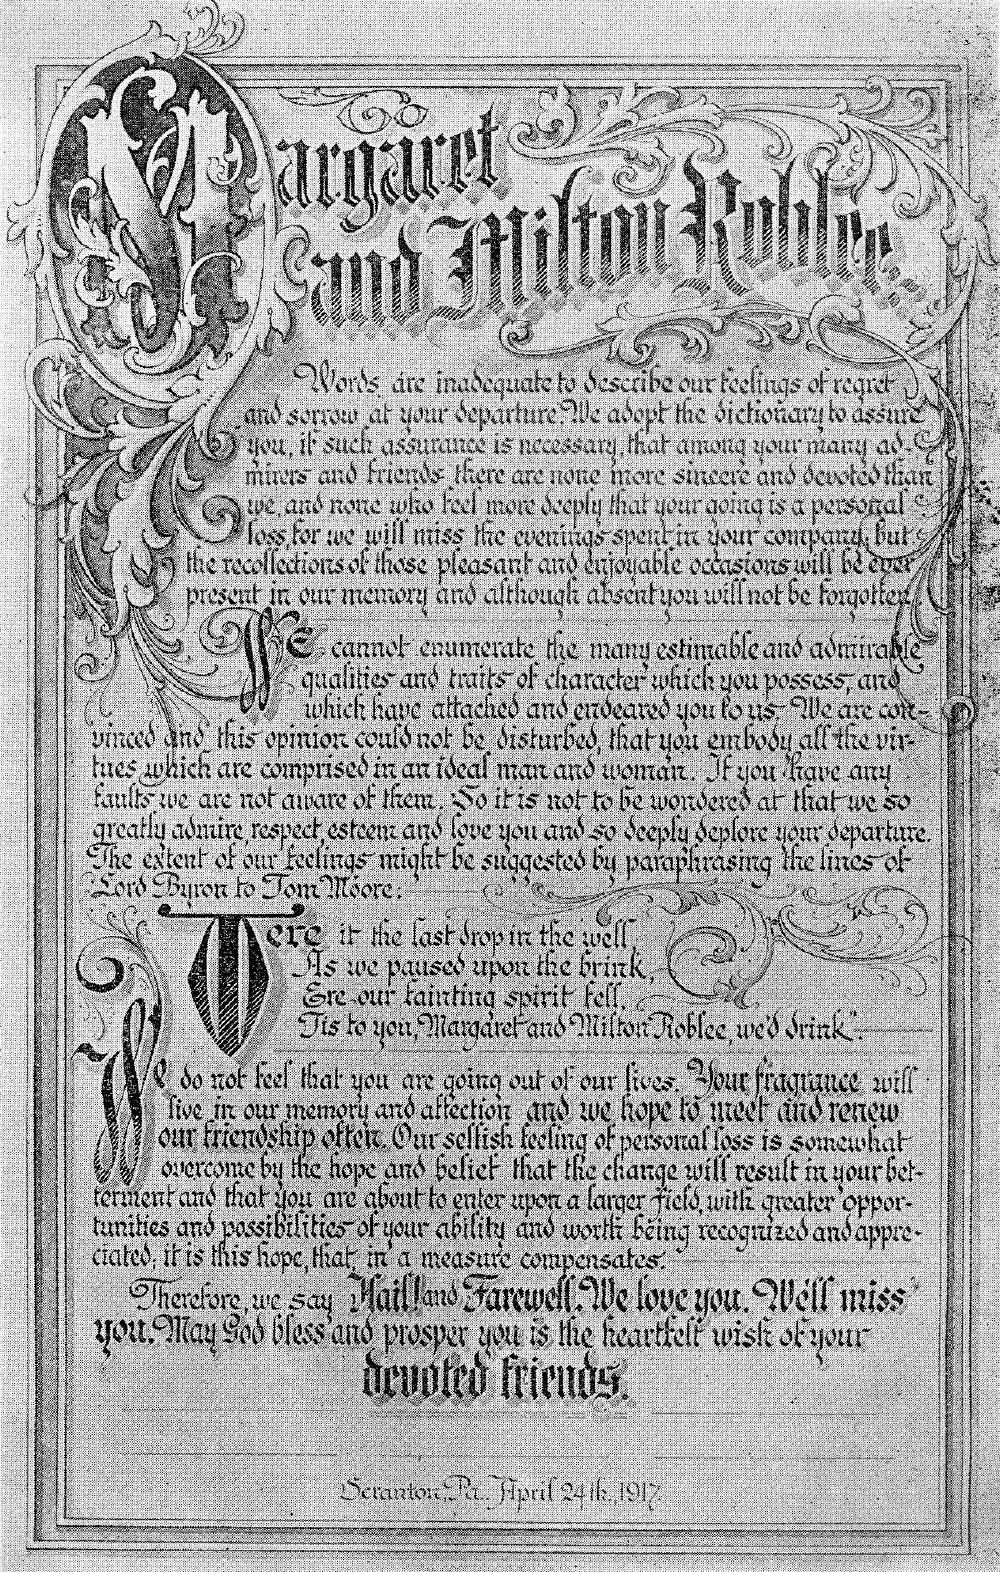 Margaret
and Milton Roblee.
Words are inadequate to describe our feelings of regret
and sorrow at your departure. We adopt the dictionary to assure
you, if such assurance is necessary, that among your many ad-
mirers and friends there are none more sincere and devoted than
we, and none who feel more deeply that your going is a personal
loss, for we will miss the evenings spent in your company, but
the recollections of those pleasant and enjoyable occasions will be ever
present in our memory and although absent you will not be forgotten.
We cannot enumerate the many estimable and admirable
qualities and traits of character which you possess, and
which have attached and endeared you to us. We are con-
vinced and this opinion could not be disturbed, that you embody all the vir-
tues which are comprised in an ideal man and woman. If you have any
faults we are not aware of them. So it is not to be wondered at that we so
greatly admire, respect, esteem and love you and so deeply deplore your departure.
The extent of our feelings might be suggested by paraphrasing the lines of
Lord Byron to Tom Moore:
Were it the last drop in the well,
As we paused upon the brink,
Ere our fainting spirit fell,
Tis to you, Margaret and Milton Roblee, we'd drink".
We do not feel that you are going out of our lives. Your fragrance will
live in our memory and affection and we hope to meet and renew
our friendship often. Our selfish feeling of personal loss is somewhat
overcome by the hope and belief that the change will result in your bet-
terment and that you are about to enter upon a larger field, with greater oppor-
tunities and possibilities of your ability and worth being recognized and appre-
ciated; it is this hope, that, in a measure compensates.
Therefore, we say Hail! and Farewell. We love you. We'll miss
you. May God bless and prosper you is the heartfelt wish of your
devoted friends.
Scranton, Pa., April 24th, 1917.